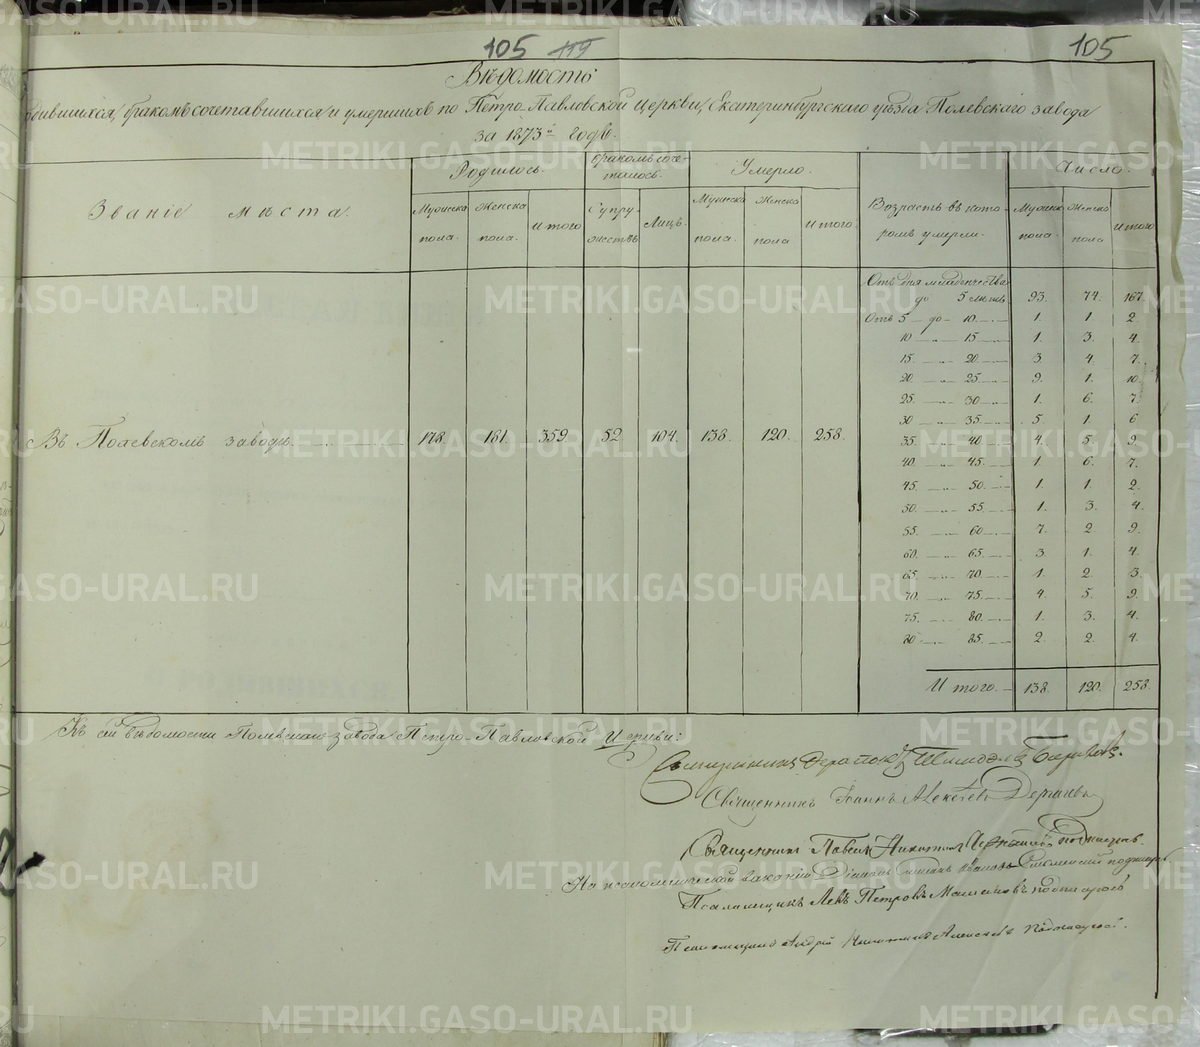 105 119 105
Вѣдомость
родившихся, бракомъ сочетавшихся и умершихъ по Петро-Павловской Церкви, Екатеринбургскаго уѣзда Полевскаго завода
за 1873й годъ.
Званіе мѣста. Родилось. Бракомъ соче-талось. Умерло. Возрастъ въ кото-ромъ умерли. Число.
Мужска пола. Женска пола. Итого Супру-жествъ Лицъ. Мужска пола. Женска пола Итого. Мужска пола. Женска пола Итого
Отъ дня младенчества
до 5 лѣтъ 93. 74. 167.
Отъ 5 до 10 1. 1. 2.
10 15 1. 3. 4.
15. 20. 3. 4. 7.
20 25 9. 1. 10.
25. 30 1. 6. 7.
30 35. 5. 1. 6
Въ Полевскомъ заводѣ 178. 181. 359 52 104. 138. 120. 258.
35. 40 4. 5. 9.
40. 45. 1. 6. 7.
45. 50. 1. 1. 2.
50. 55. 1. 3. 4.
55. 60 7. 2 9.
60. 65. 3. 1. 4.
65. 70. 1. 2. 3.
70. 75. 4. 5. 9.
75. 80. 1. 3. 4.
80 85. 2. 2. 4.
Итого. 138. 120. 258.
Къ сей вѣдомости Полевскаго завода Петро-Павловской Церкви:
Священникъ Іоаннъ Алексѣевъ
Священникъ Павелъ подписалъ.
На псаломщической вакансіи Діаконъ
Псаломщикъ Левъ Петровъ подписался
Псаломщикъ Андрей подписался.
METRIKI.GASO-URAL.RU